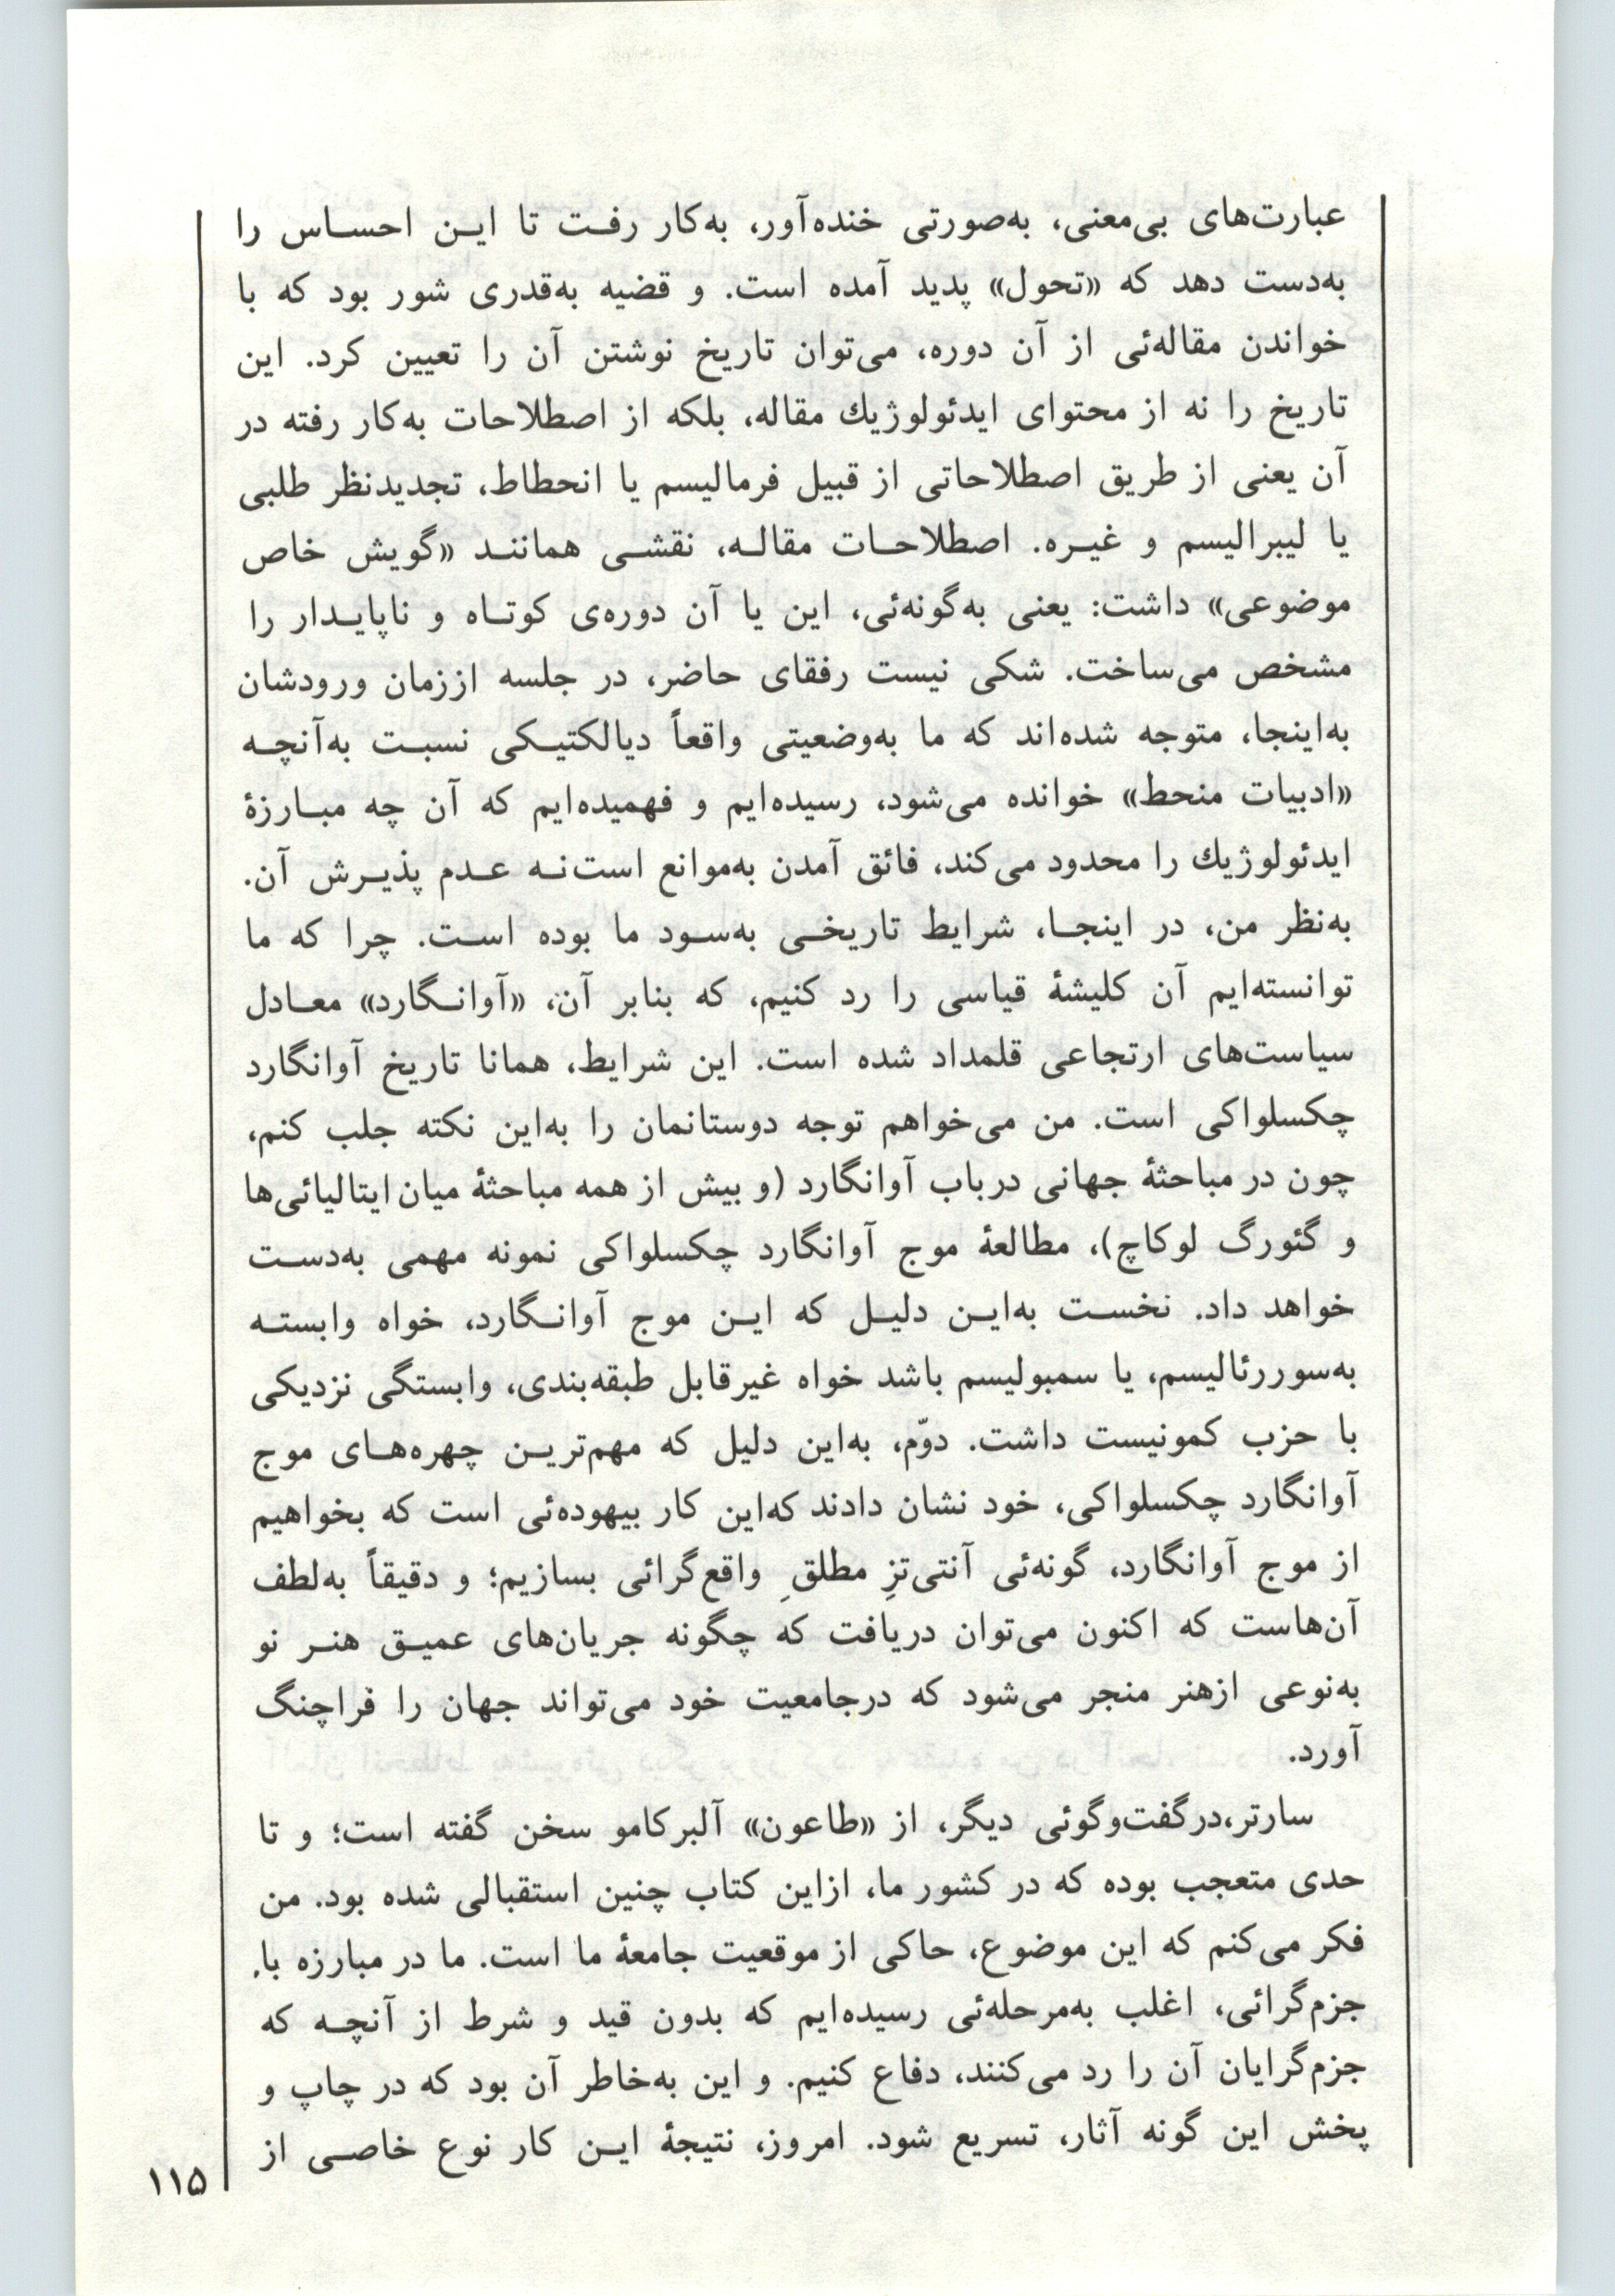 عبارت‌های بی‌معنی، به‌صورتی خنده‌آور، به‌کار رفت تا این احساس را
به‌دست دهد که «تحول» پدید آمده است. و قضیه به‌قدری شور بود که با
خواندن مقاله‌ئی از آن دوره، می‌توان تاریخ نوشتن آن را تعیین کرد. این
تاریخ را نه از محتوای ایدئولوژیك مقاله، بلکه از اصطلاحات به‌کار رفته در
آن یعنی از طریق اصطلاحاتی از قبیل فرمالیسم یا انحطاط، تجدیدنظر طلبی
یا لیبرالیسم و غیره. اصطلاحات مقاله، نقشی همانند «گویش خاص
موضوعی» داشت: یعنی به‌گونه‌ئی، این یا آن دوره‌ی کوتاه و ناپایدار را
مشخص می‌ساخت. شکی نیست رفقای حاضر، در جلسه اززمان ورودشان
به‌اینجا، متوجه شده‌اند که ما به‌وضعیتی واقعاً دیالکتیکی نسبت به‌آنچه
«ادبیات منحط» خوانده می‌شود، رسیده‌ایم و فهمیده‌ایم که آن چه مبارزهٔ
ایدئولوژیك را محدود می‌کند، فائق آمدن به‌موانع است‌نه عدم پذیرش آن.
به‌نظر من، در اینجا، شرایط تاریخی به‌سود ما بوده است. چرا که ما
توانسته‌ایم آن کلیشهٔ قیاسی را رد کنیم، که بنابر آن، «آوانگارد» معادل
سیاست‌های ارتجاعی قلمداد شده است. این شرایط، همانا تاریخ آوانگارد
چکسلواکی است. من می‌خواهم توجه دوستانمان را به‌این نکته جلب کنم،
چون در مباحثهٔ جهانی درباب آوانگارد (و بیش از همه مباحثهٔ میان ایتالیائی‌ها
و گئورگ لوکاچ)، مطالعهٔ موج آوانگارد چکسلواکی نمونه مهمی به‌دست
خواهد داد. نخست به‌این دلیل که این موج آوانگارد، خواه وابسته
به‌سوررئالیسم، یا سمبولیسم باشد خواه غیرقابل طبقه‌بندی، وابستگی نزدیکی
با حزب کمونیست داشت. دوّم، به‌این دلیل که مهم‌ترین چهره‌های موج
آوانگارد چکسلواکی، خود نشان دادند که‌این کار بیهوده‌ئی است که بخواهیم
از موج آوانگارد، گونه‌ئی آنتی‌تزِ مطلقِ واقع‌گرائی بسازیم؛ و دقیقاً به‌لطف
آن‌هاست که اکنون می‌توان دریافت که چگونه جریان‌های عمیق هنر نو
به‌نوعی ازهنر منجر می‌شود که درجامعیت خود می‌تواند جهان را فراچنگ
آورد.
سارتر،درگفت‌وگوئی دیگر، از «طاعون» آلبرکامو سخن گفته است؛ و تا
حدی متعجب بوده که در کشور ما، ازاین کتاب چنین استقبالی شده بود. من
فکر می‌کنم که این موضوع، حاکی از موقعیت جامعهٔ ما است. ما در مبارزه با
جزم‌گرائی، اغلب به‌مرحله‌ئی رسیده‌ایم که بدون قید و شرط از آنچه که
جزم‌گرایان آن را رد می‌کنند، دفاع کنیم. و این به‌خاطر آن بود که در چاپ و
پخش این گونه آثار، تسریع شود. امروز، نتیجهٔ این کار نوع خاصی از
۱۱۵